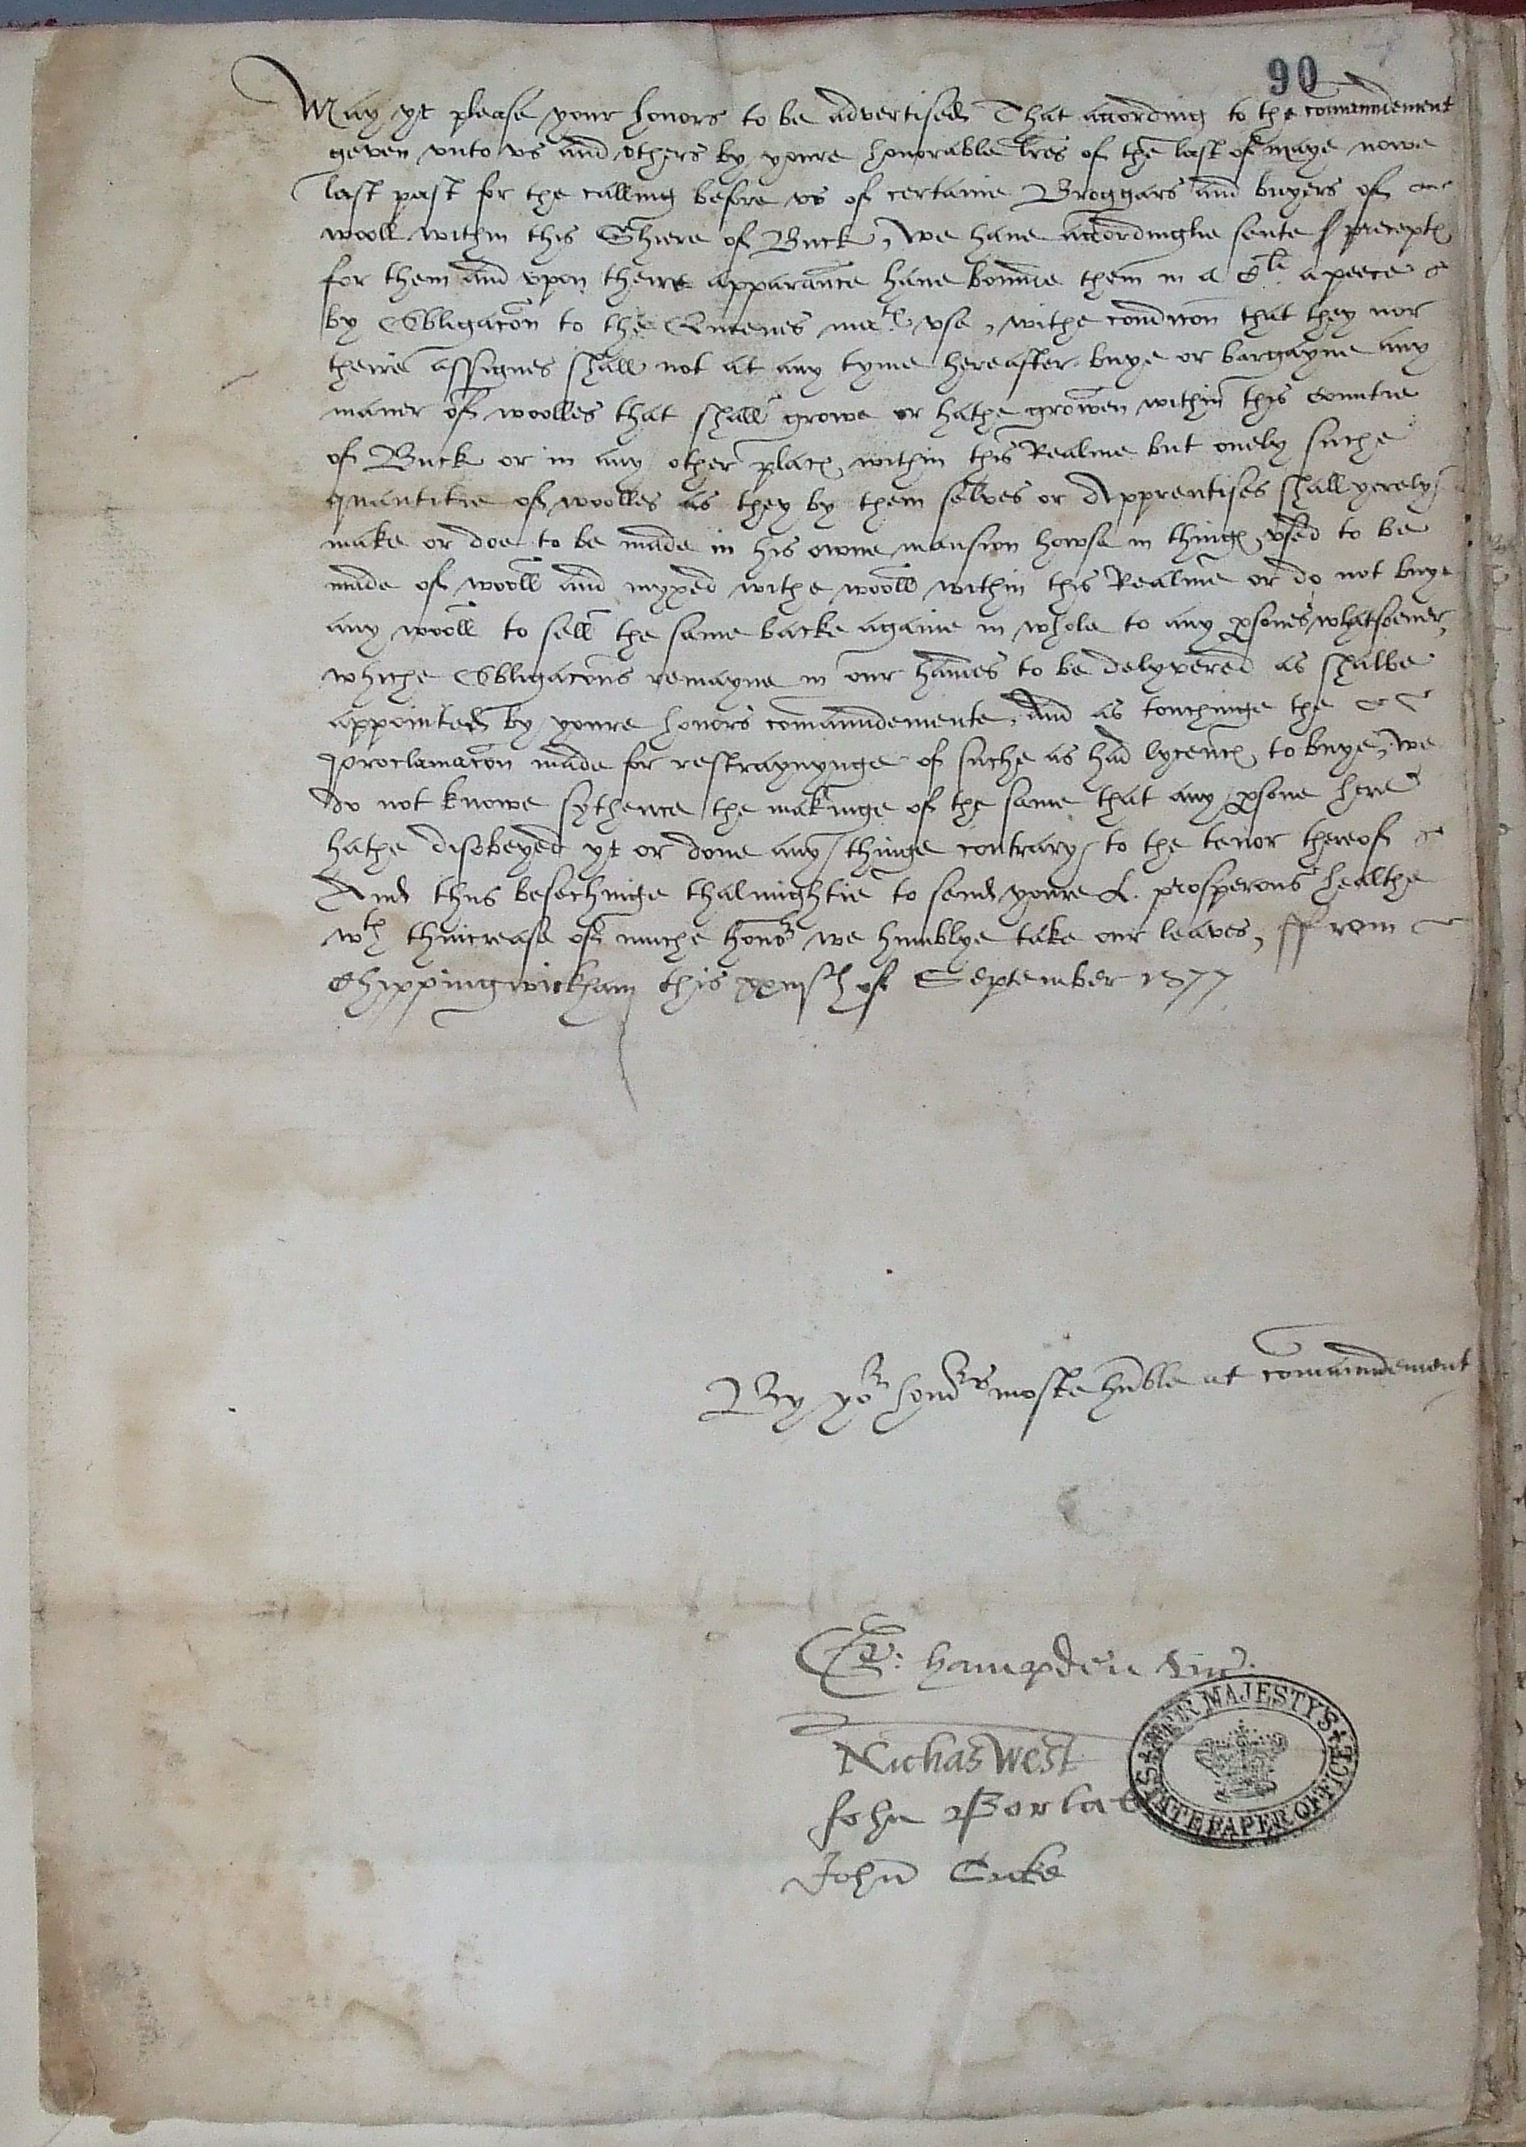 90
May yt please your honors to be advertised That according to the comaundement
geven vnto vs and others by youre honorable lres of the last of maye nowe
last past for the calling before vs of certaine Broggars and buyers of
wooll within this Shiere of Buck, we haue accordinglie sente precept
for them and vpon theire apparance haue bounde them in a Cli apeece
by Obligacon to the Quenes matie vse, withe condicon that they nor
theire assignes shall not at any tyme hereafter buye or bargayne any
maner of woolles that shall growe or hathe growen within this countie
of Buck or in any other place within this Realme but onely suche
quantitie of woolles as they by them selves or Apprentises shall yerely
make or doe to be made in his owne mansion howse in things vsed to be
made of wooll and myxed withe wooll within this Realme or do not buye
any wooll to sell the same backe againe in whole to any psones whatsoever,
whiche Obligacons remayne in our handes to be delyvered as shalbe
appointed by youre honors comaundemente, And as touchinge the
Proclamacon made for restraynynge of suche as had lycence to buye, we
do not knowe sythence the makinge of the same that any psone here
hathe disobeyed yt or done any thinge contrary to the tenor thereof
And thus besechinge thalmightie to send youre L. prosperous healthe
wth thincrease of muche honor we humblye take our leaves, ffrom
Chippingwickham this xxiijth of September 1577
By yor honors moste hũble at comaundement
Gr: hampden vic.
Nichas West
John Borlas
John Cuke
HER MAJESTY'S STATE PAPER OFFICE